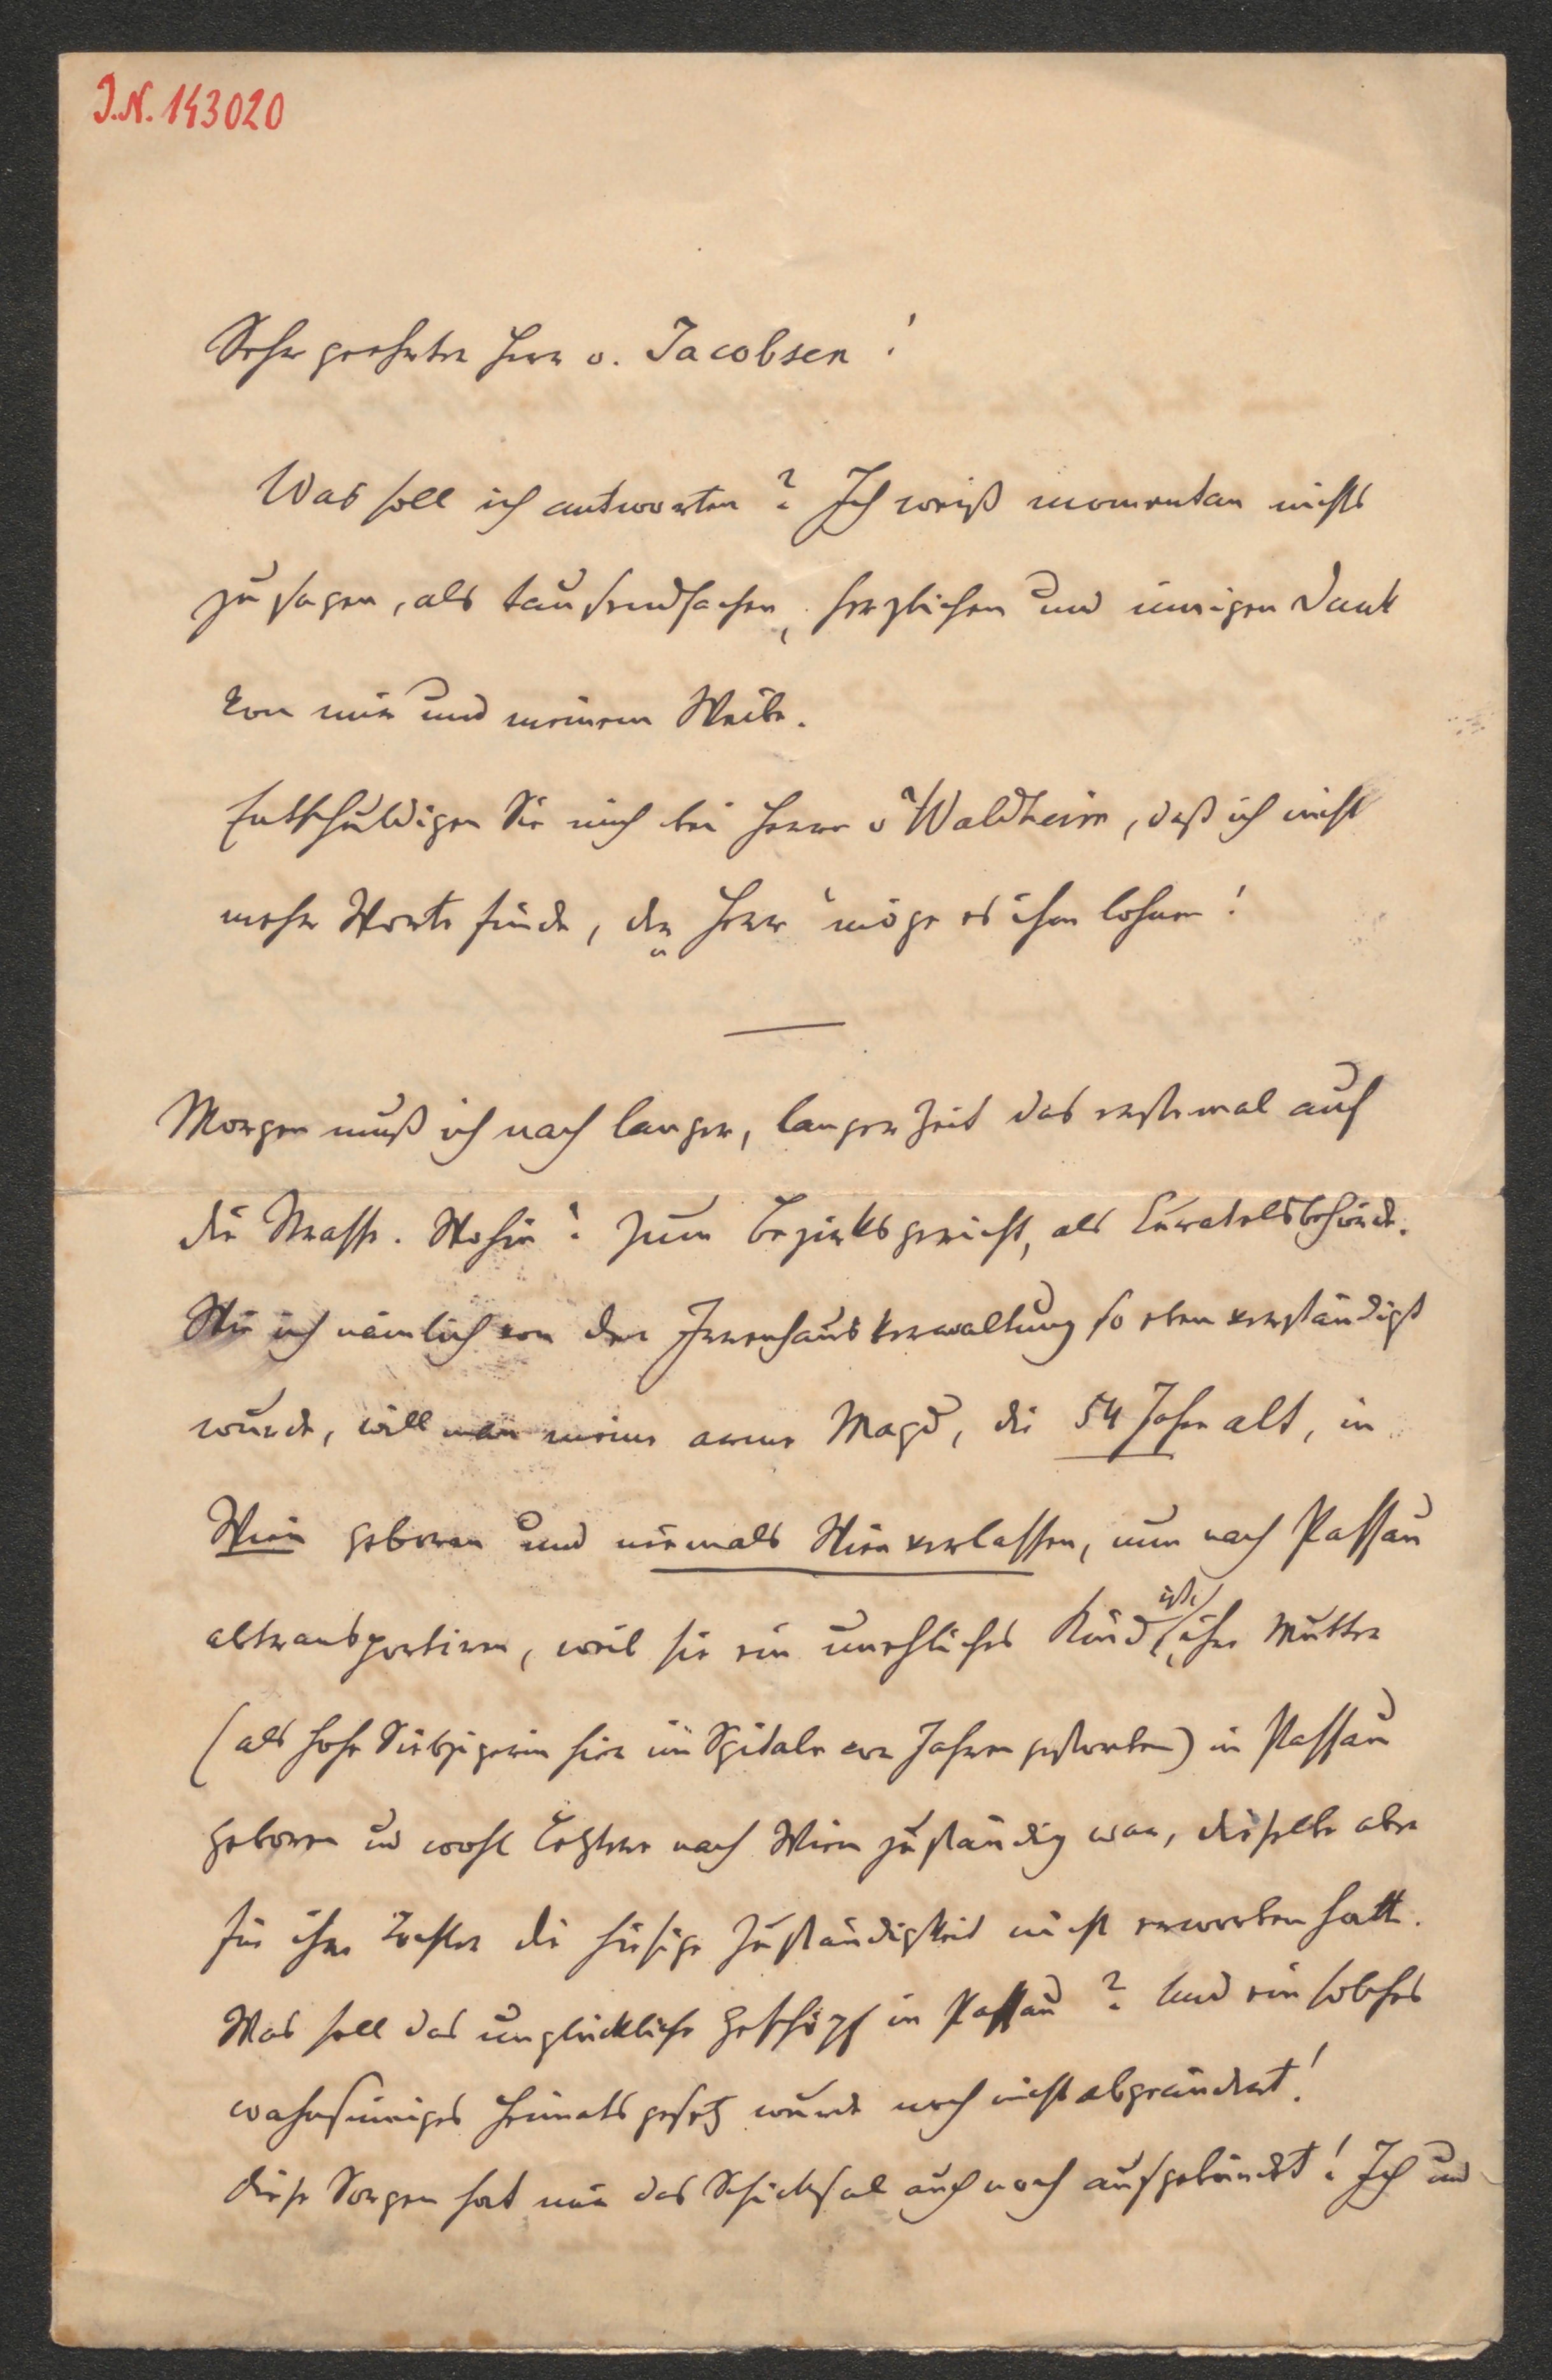 J.N. 143020
Sehr geehrter Herr v. Jacobsen!
Was soll ich antworten? Ich weiß momentan nichts
zu sagen, als tausendfachen, herzlichen und innigen Dank
von mir und meinem Weibe.
Entschuldigen Sie mich bei Herrn v Waldheim, daß ich nicht
mehr Worte finde, „der Herr“ möge es ihm lohnen!
Morgen muß ich nach langer, langer Zeit das erstemal auf
die Strasse. Wohin? Zum Bezirksgericht, als Curatelsbehörde.
Wie ich nämlich von der Irrenhausverwaltung so eben verständigt
wurde, will man meine arme Magd, die 54 Jahre alt, in
Wien geboren und niemals Wien verlassen, nun nach Passau
abtransportiren, weil sie ein unehliches Kind ist, ihre Mutter
(als hohe Siebzigerin hier im Spitale vor Jahren gestorben) in Passau
geboren und wohl Letztere nach Wien zuständig war, dieselbe aber
für ihre Tochter die hiesige Zuständigkeit nicht erworben hatte.
Was soll das unglückliche Geschöpf in Passau? Und ein solches
wahnsinniges Heimatsgesetz wurde noch nicht abgeändert!
Diese Sorgen hat mir das Schicksal auch noch aufgebürdet! Ich und